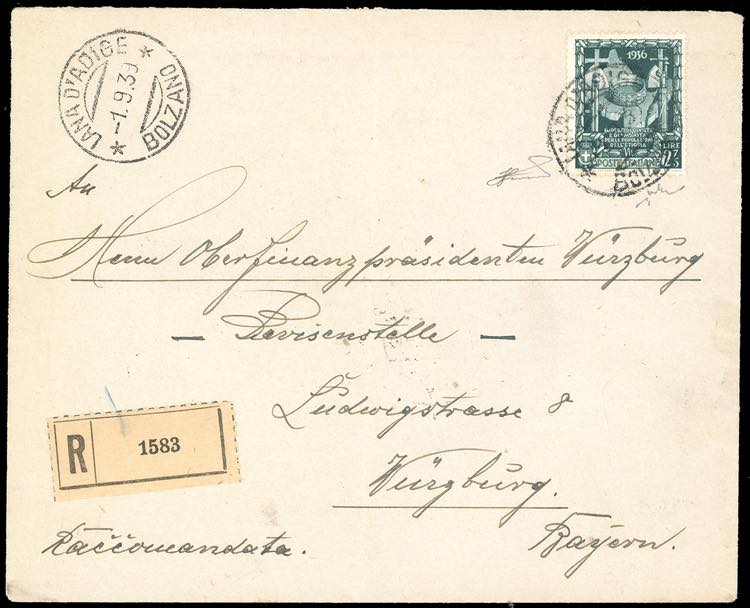 LANA D'ADIGE * BOLZANO *
-1.9.39
1936
IMPERO
DELL'ETIOPIA
LIRE
2,75
POSTE ITALIANE
An
Herrn Oberfinanzpräsidenten Würzburg
— Devisenstelle —
Ludwigstrasse 8
Würzburg.
R 1583
Raccomandata.
Bayern.